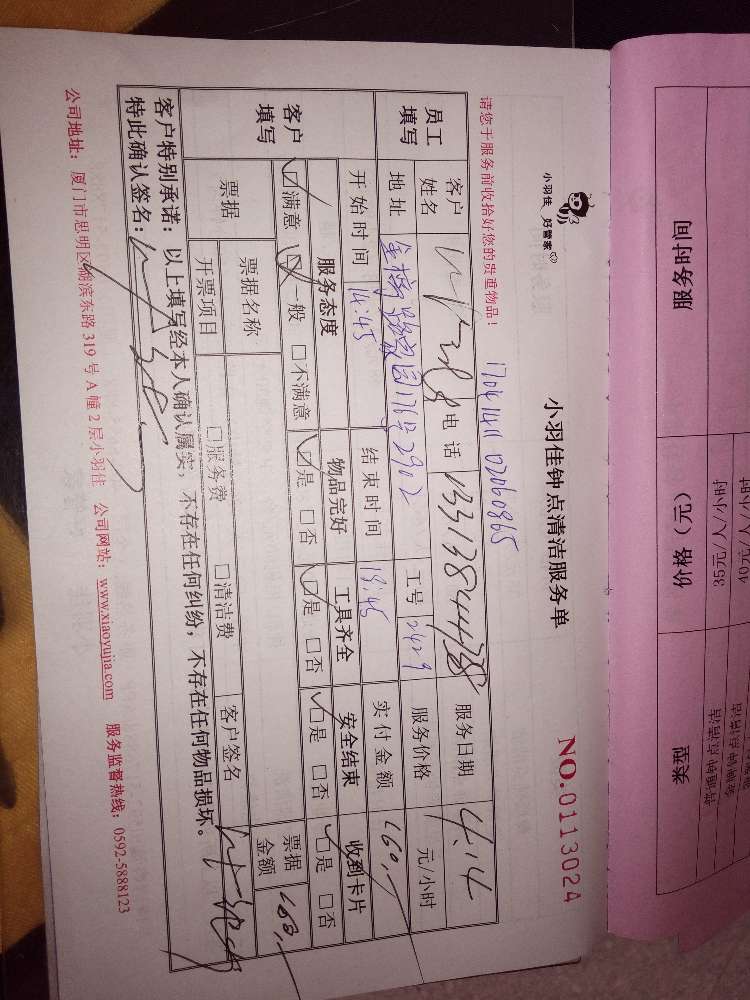 小羽佳 好管家
小羽佳钟点清洁服务单
NO.0113024
请您于服务前收拾好您的贵重物品！
17041411 02060865
员工填写
客户姓名
电话
服务日期 4.14
地址
16号2902
工号 2429
服务价格 元/小时
开始时间 14:45
结束时间
实付金额 160,—
客户填写
服务态度 物品完好 工具齐全 安全结束 收到卡片
☑满意 ☑一般 □不满意 ☑是 □否 ☑是 □否 ☑是 □否 ☑是 □否
票据
票据名称
□服务费 □清洁费
开票项目
客户签名
票据金额 160,—
客户特别承诺：以上填写经本人确认属实，不存在任何纠纷，不存在任何物品损坏。
特此确认签名：
公司地址：厦门市思明区湖滨东路319号A幢2层小羽佳 公司网站：www.xiaoyujia.com 服务监督热线：0592-5888123
服务时间
价格（元） 35元/人/小时
类型 普通钟点清洁